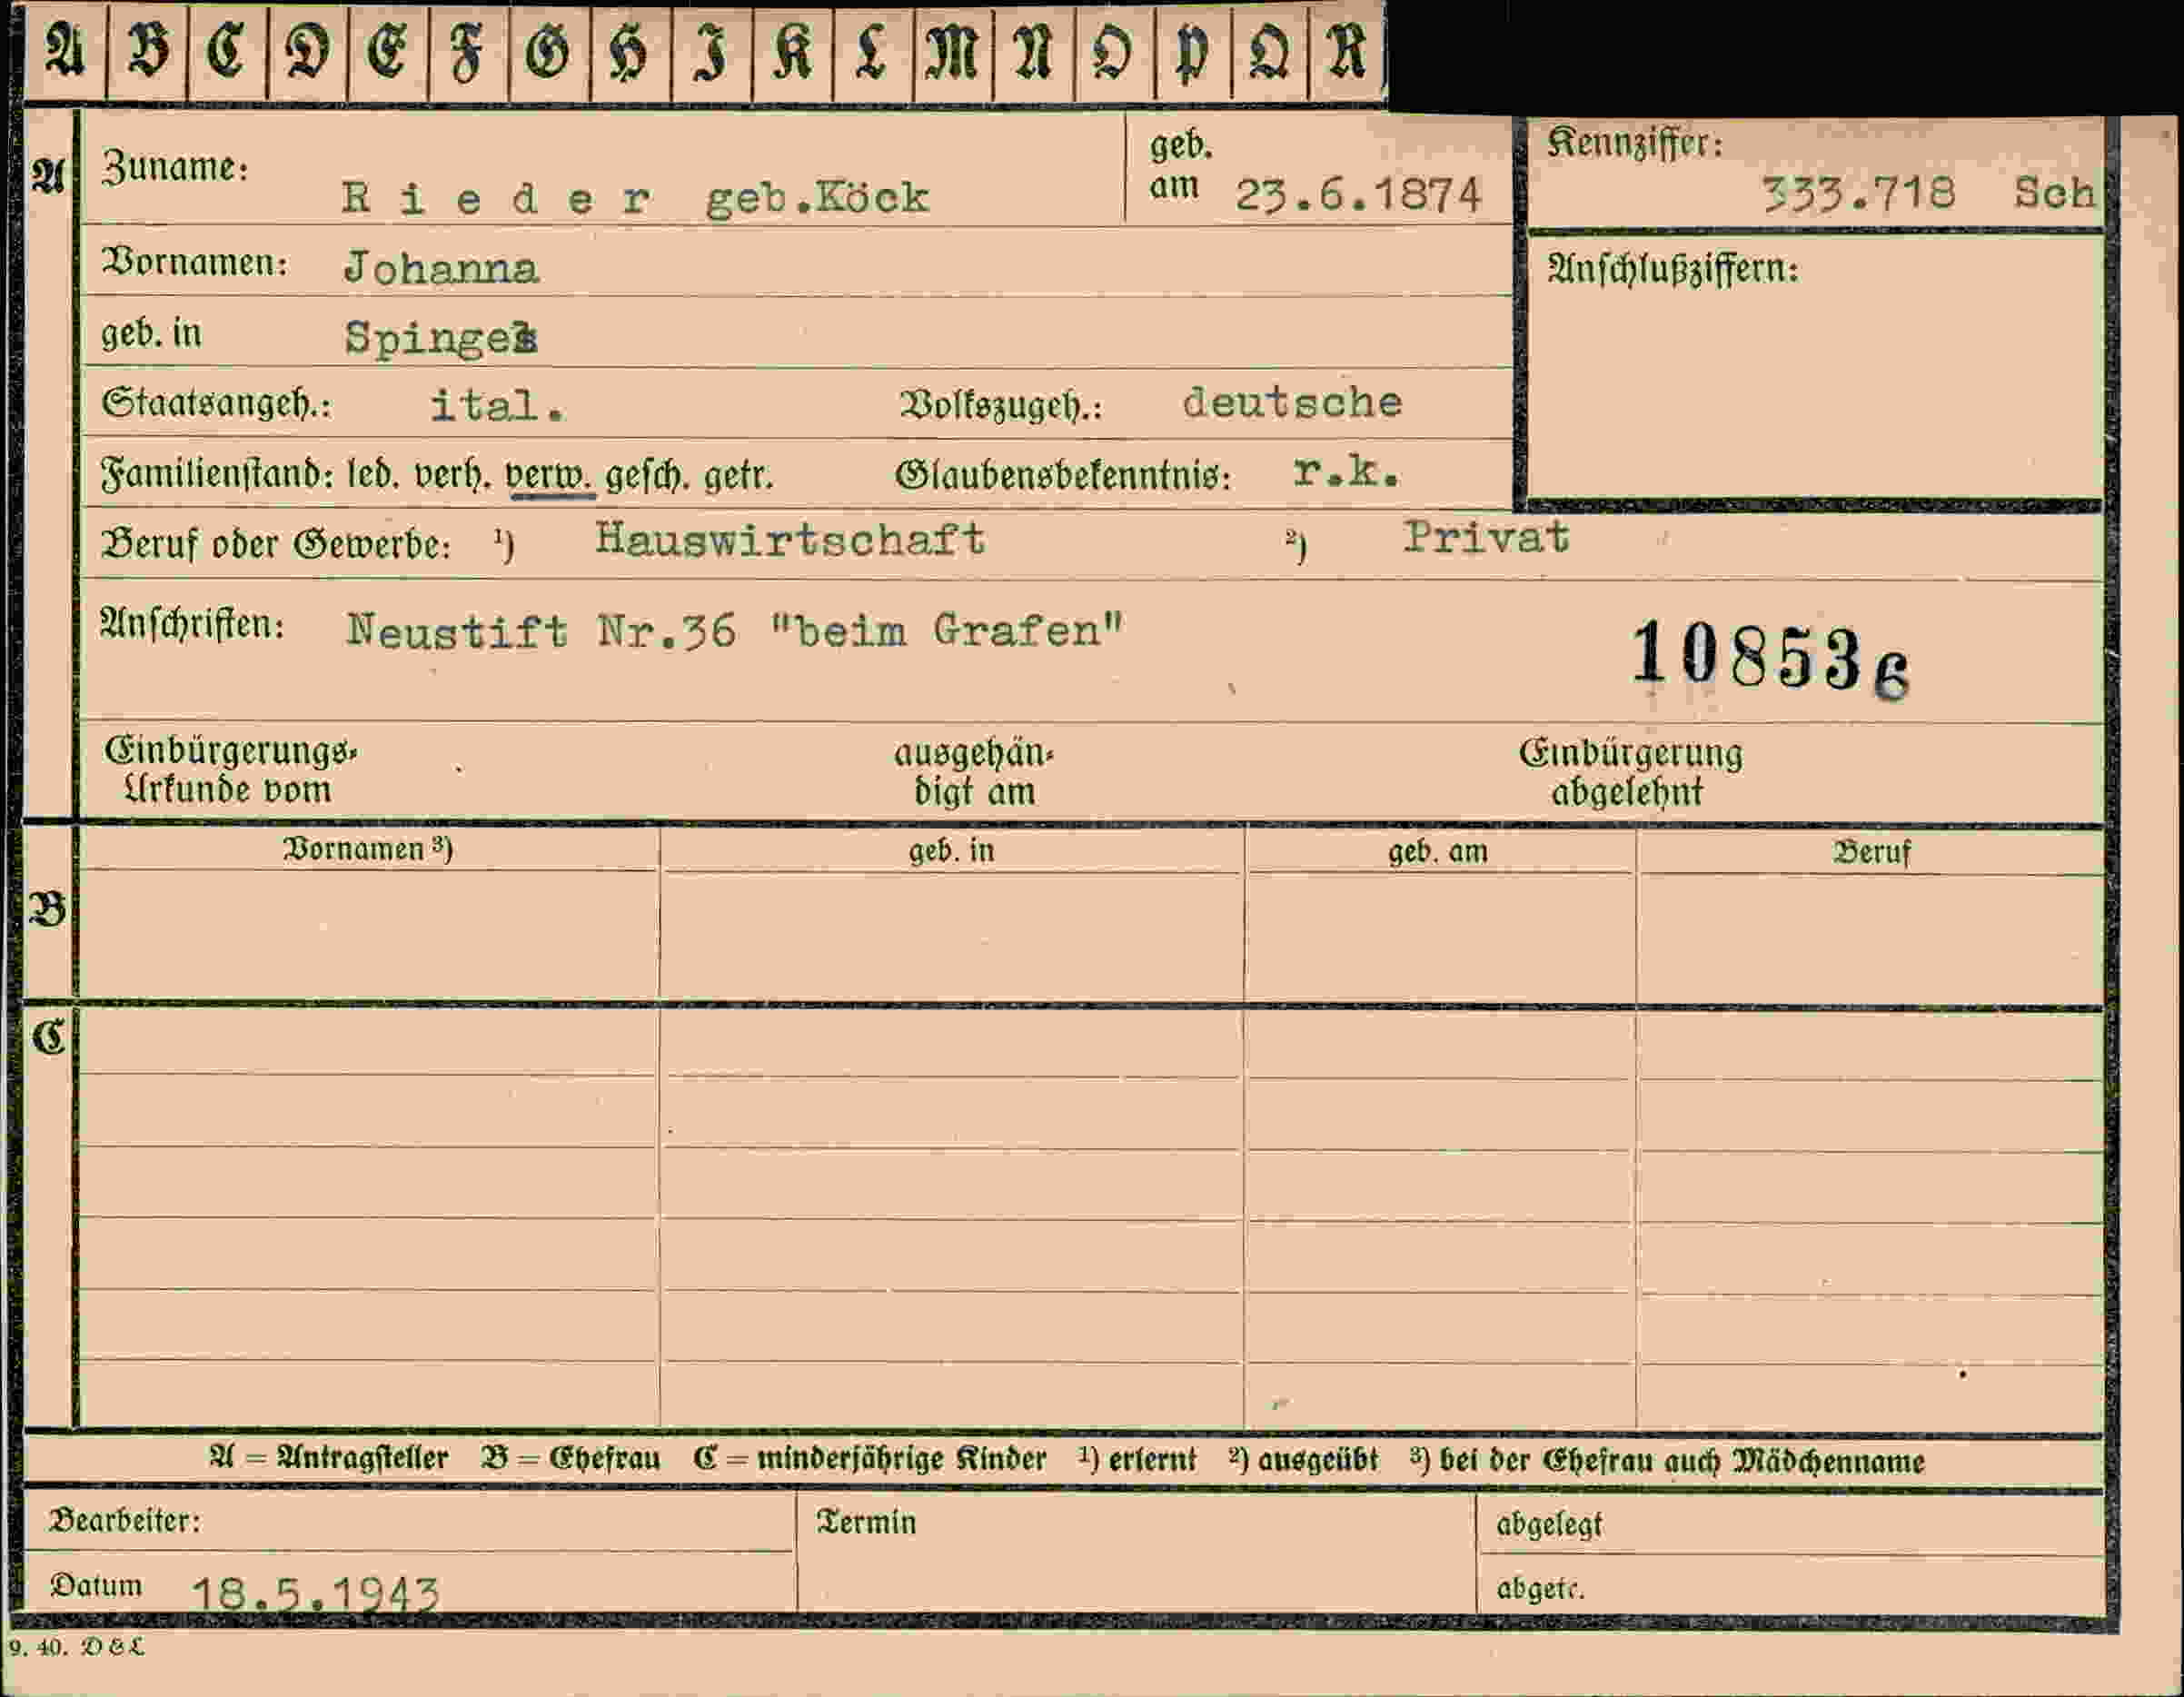 A B C D E F G H I K L M N O P Q R
A
Zuname: Rieder geb.Köck
geb. am 23.6.1874
Kennziffer: 333.718 Sch
Vornamen: Johanna
Anschlußziffern:
geb. in Spinges
Staatsangeh.: ital. Volkszugeh.: deutsche
Familienstand: led. verh. verw. gesch. getr. Glaubensbekenntnis: r.k.
Beruf oder Gewerbe: ¹) Hauswirtschaft ²) Privat
Anschriften: Neustift Nr.36 "beim Grafen"
108536
Einbürgerungs-
Urkunde vom
ausgehän-
digt am
Einbürgerung
abgelehnt
Vornamen ³) geb. in geb. am Beruf
B
C
A = Antragsteller B = Ehefrau C = minderjährige Kinder ¹) erlernt ²) ausgeübt ³) bei der Ehefrau auch Mädchenname
Bearbeiter: Termin abgelegt
Datum 18.5.1943 abgetr.
9. 40. D & L